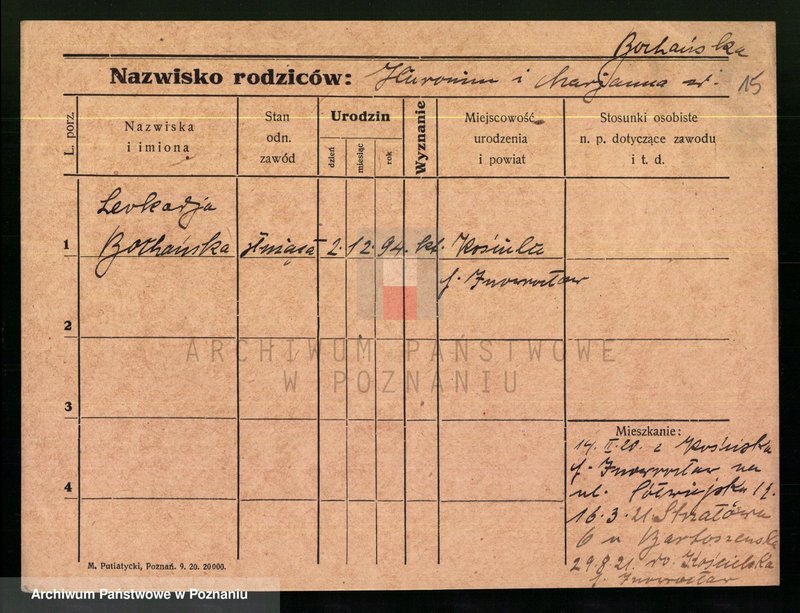 Bochańska
Nazwisko rodziców: Hieronim i Marjanna
15
L. porz
Nazwiska
i imiona
Stan
odn.
zawód
Urodzin
dzień
miesiąc
rok
Wyznanie
Miejscowość
urodzenia
i powiat
Stosunki osobiste
n. p. dotyczące zawodu
i t. d.
Leokadja
1 Bochańska służąca 2. 12. 94. kt.
p. Inowrocław
2
3
4
Mieszkanie:
14. II. 20. z
p. Inowrocław na
ul. Półwiejska
16. 3. 21. Strzałowa
6 u
29. 8. 21. do
p. Inowrocław
M. Putiatycki, Poznań. 9. 20. 20000.
ARCHIWUM PAŃSTWOWE
W POZNANIU
Archiwum Państwowe w Poznaniu